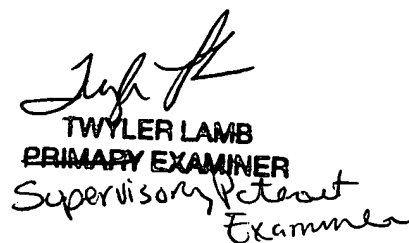 TWYLER LAMB
PRIMARY EXAMINER
Supervisory Patent
Examiner